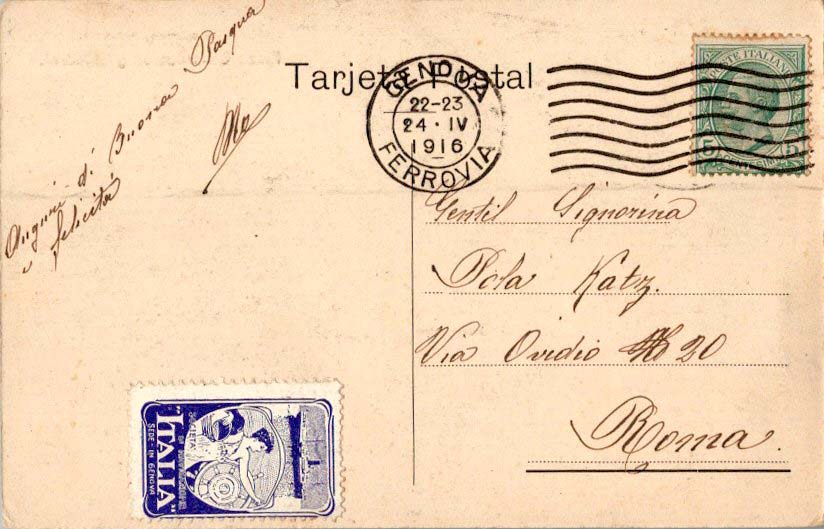 Tarjeta Postal
GENOVA
22-23
24 · IV
1916
FERROVIA
POSTE ITALIANE
5 CENTESIMI 5
Auguri di Buona Pasqua
e felicità
Gentil Signorina
Pola Katz.
Via Ovidio No 20
Roma.
SOCIETÀ
DI NAVIGAZIONE
"ITALIA"
SEDE - IN GENOVA